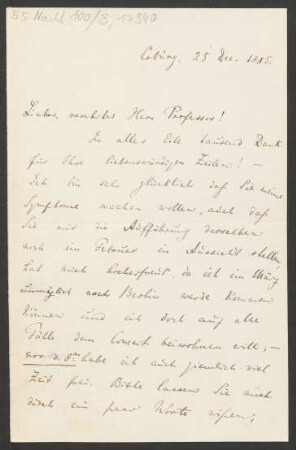 55 Nachl 100/B, 17940
Coburg, 25 Dec. 1885.
Lieber, verehrter Herr Professor!
In aller Eile tausend Dank
für Ihre liebenswürdigen Zeilen! –
Ich bin sehr glücklich daß Sie meine
Symphonie machen wollen, auch daß
Sie mir die Aufführung derselben
noch im Februar in Aussicht stellen,
hat mich hocherfreut, da ich im März
unmöglich nach Berlin werde kommen
können und ich doch auf alle
Fälle dem Concert beiwohnen will, –
vor d. 8ten habe ich auch ziemlich viel
Zeit frei. Bitte lassen Sie mich
durch ein paar Worte wissen,